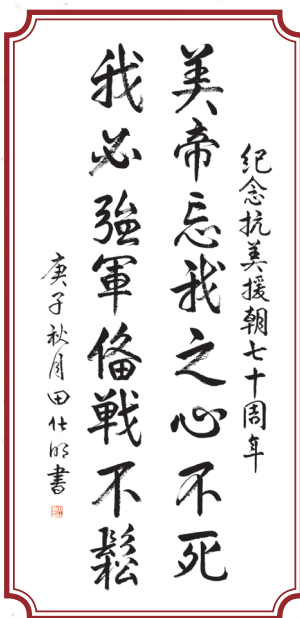 纪念抗美援朝七十周年
美帝忘我之心不死
我必強軍備戦不鬆
庚子秋月田仕明書